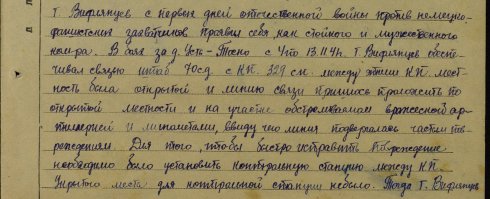 т. Вифлянцев с первых дней отечественной войны против немецко-
фашистских захватчиков проявил себя, как стойкого и мужественного
ком-ра. В боях за д. Усть-Тосно с 4 по 13.11.41г. т. Вифлянцев обеспе-
чивал связью штаб 70сд. с К.П. 329 сп. между этими К.П. мест-
ность была открытой и линию связи пришлось проложить по
открытой местности и на участке обстреливаемом вражеской ар-
тиллерией и минометами, ввиду чего линия подвергалась частым по-
вреждениям. Для того, чтобы быстро исправить повреждение
необходимо было установить контрольную станцию между К.П.
Укрытого места для контрольной станции небыло. Тогда т. Вифлянцев